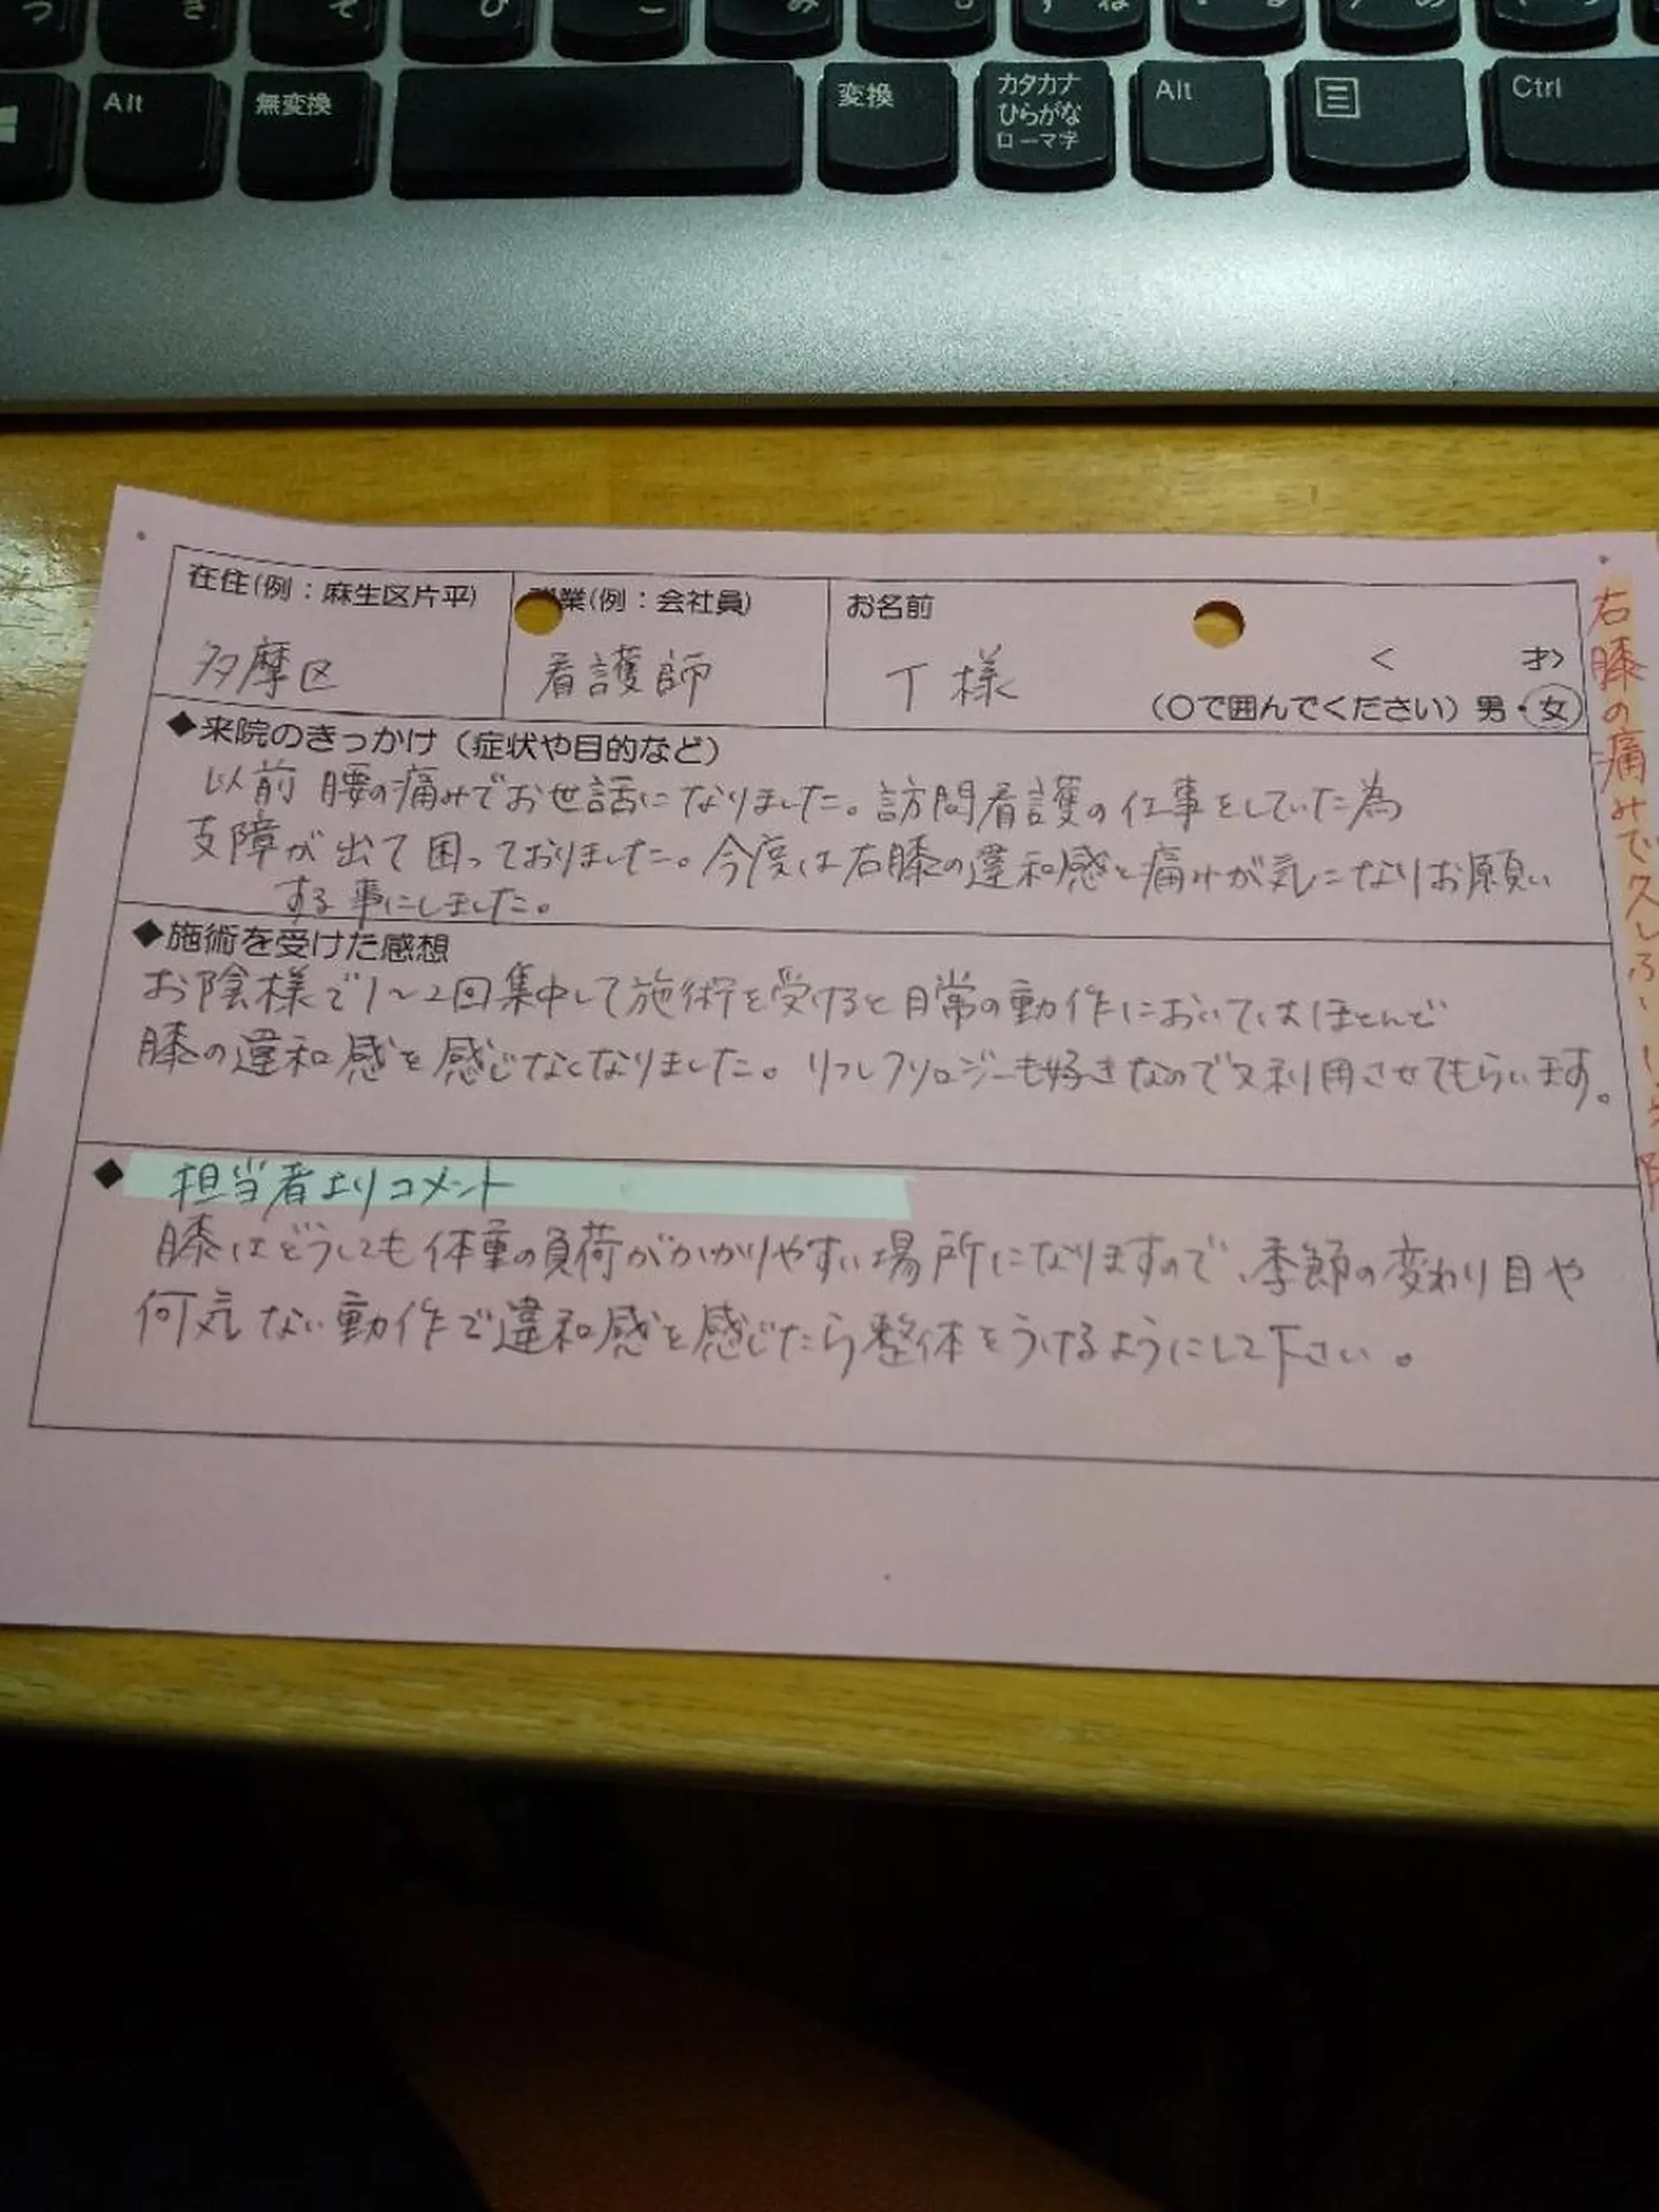 Alt
無変換
変換
カタカナ
ひらがな
ローマ字
Alt
Ctrl
在住(例：麻生区片平)
業(例：会社員)
お名前
多摩区
看護師
T様
< 才>
(○で囲んでください) 男・女
◆来院のきっかけ (症状や目的など)
以前 腰の痛みでお世話になりました。訪問看護の仕事をしていた為
支障が出て困っておりました。今度は右膝の違和感と痛みが気になりお願い
する事にしました。
◆施術を受けた感想
お陰様で1～2回集中して施術を受けると日常の動作においてはほとんど
膝の違和感を感じなくなりました。リフレクソロジーも好きなので又利用させてもらいます。
◆担当者よりコメント
膝はどうしても体重の負荷がかかりやすい場所になりますので、季節の変わり目や
何気ない動作で違和感を感じたら整体をうけるようにして下さい。
右膝の痛みで久しぶり